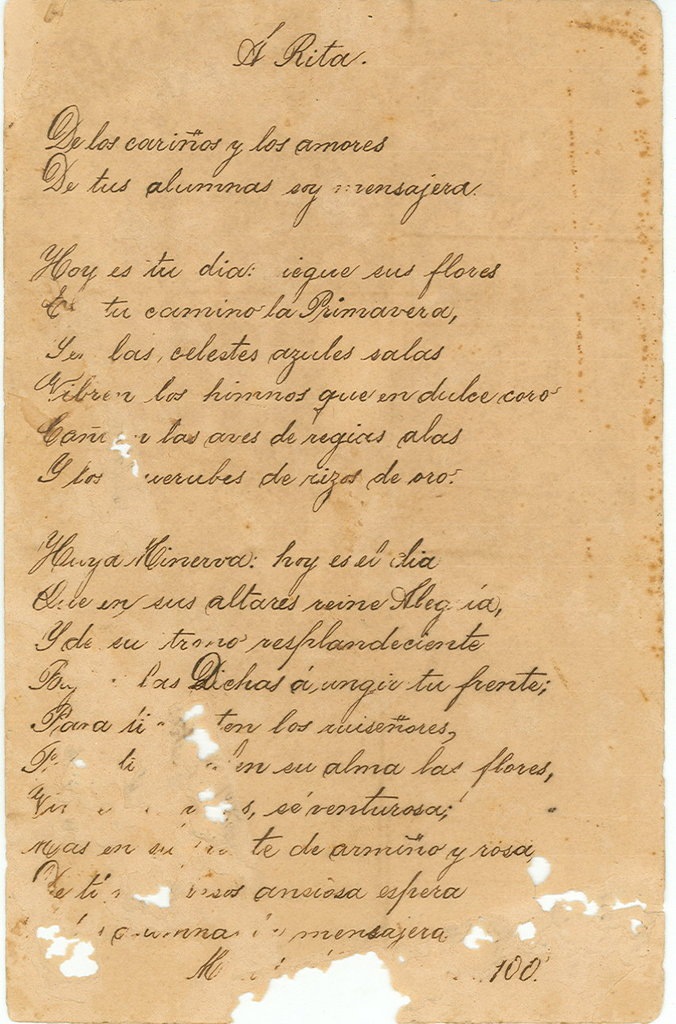 Á Rita.
De los cariños y los amores
De tus alumnas soy mensajera.
Hoy es tu dia: iegue sus flores
tu camino la Primavera,
las celestes azules salas
Vibren los himnos que en dulce coro
las aves de regias alas
Y los uerubes de rizos de oro.
Huya Minerva: hoy es el dia
Que en sus altares reine Aleg ia,
Y de su trono resplandeciente
las Dichas á ungir tu frente;
Para ti ten los ruiseñores,
ti en su alma las flores,
s, sé venturosa;
Mas en te de armiño y rosa,
De ti sos ansiosa espera
mensajera
100.